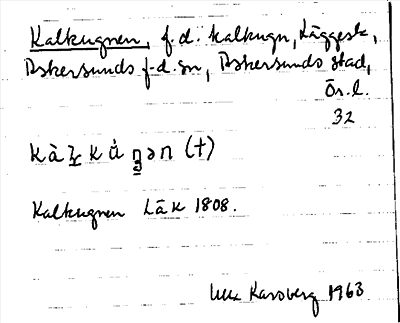 Kalkugnen, f.d. kalkugn, Läggest.,
Askersunds f.d. sn, Askersunds stad,
Ör. l.
32
(†)
Kalkugnen LäK 1808.
Karsberg 1963